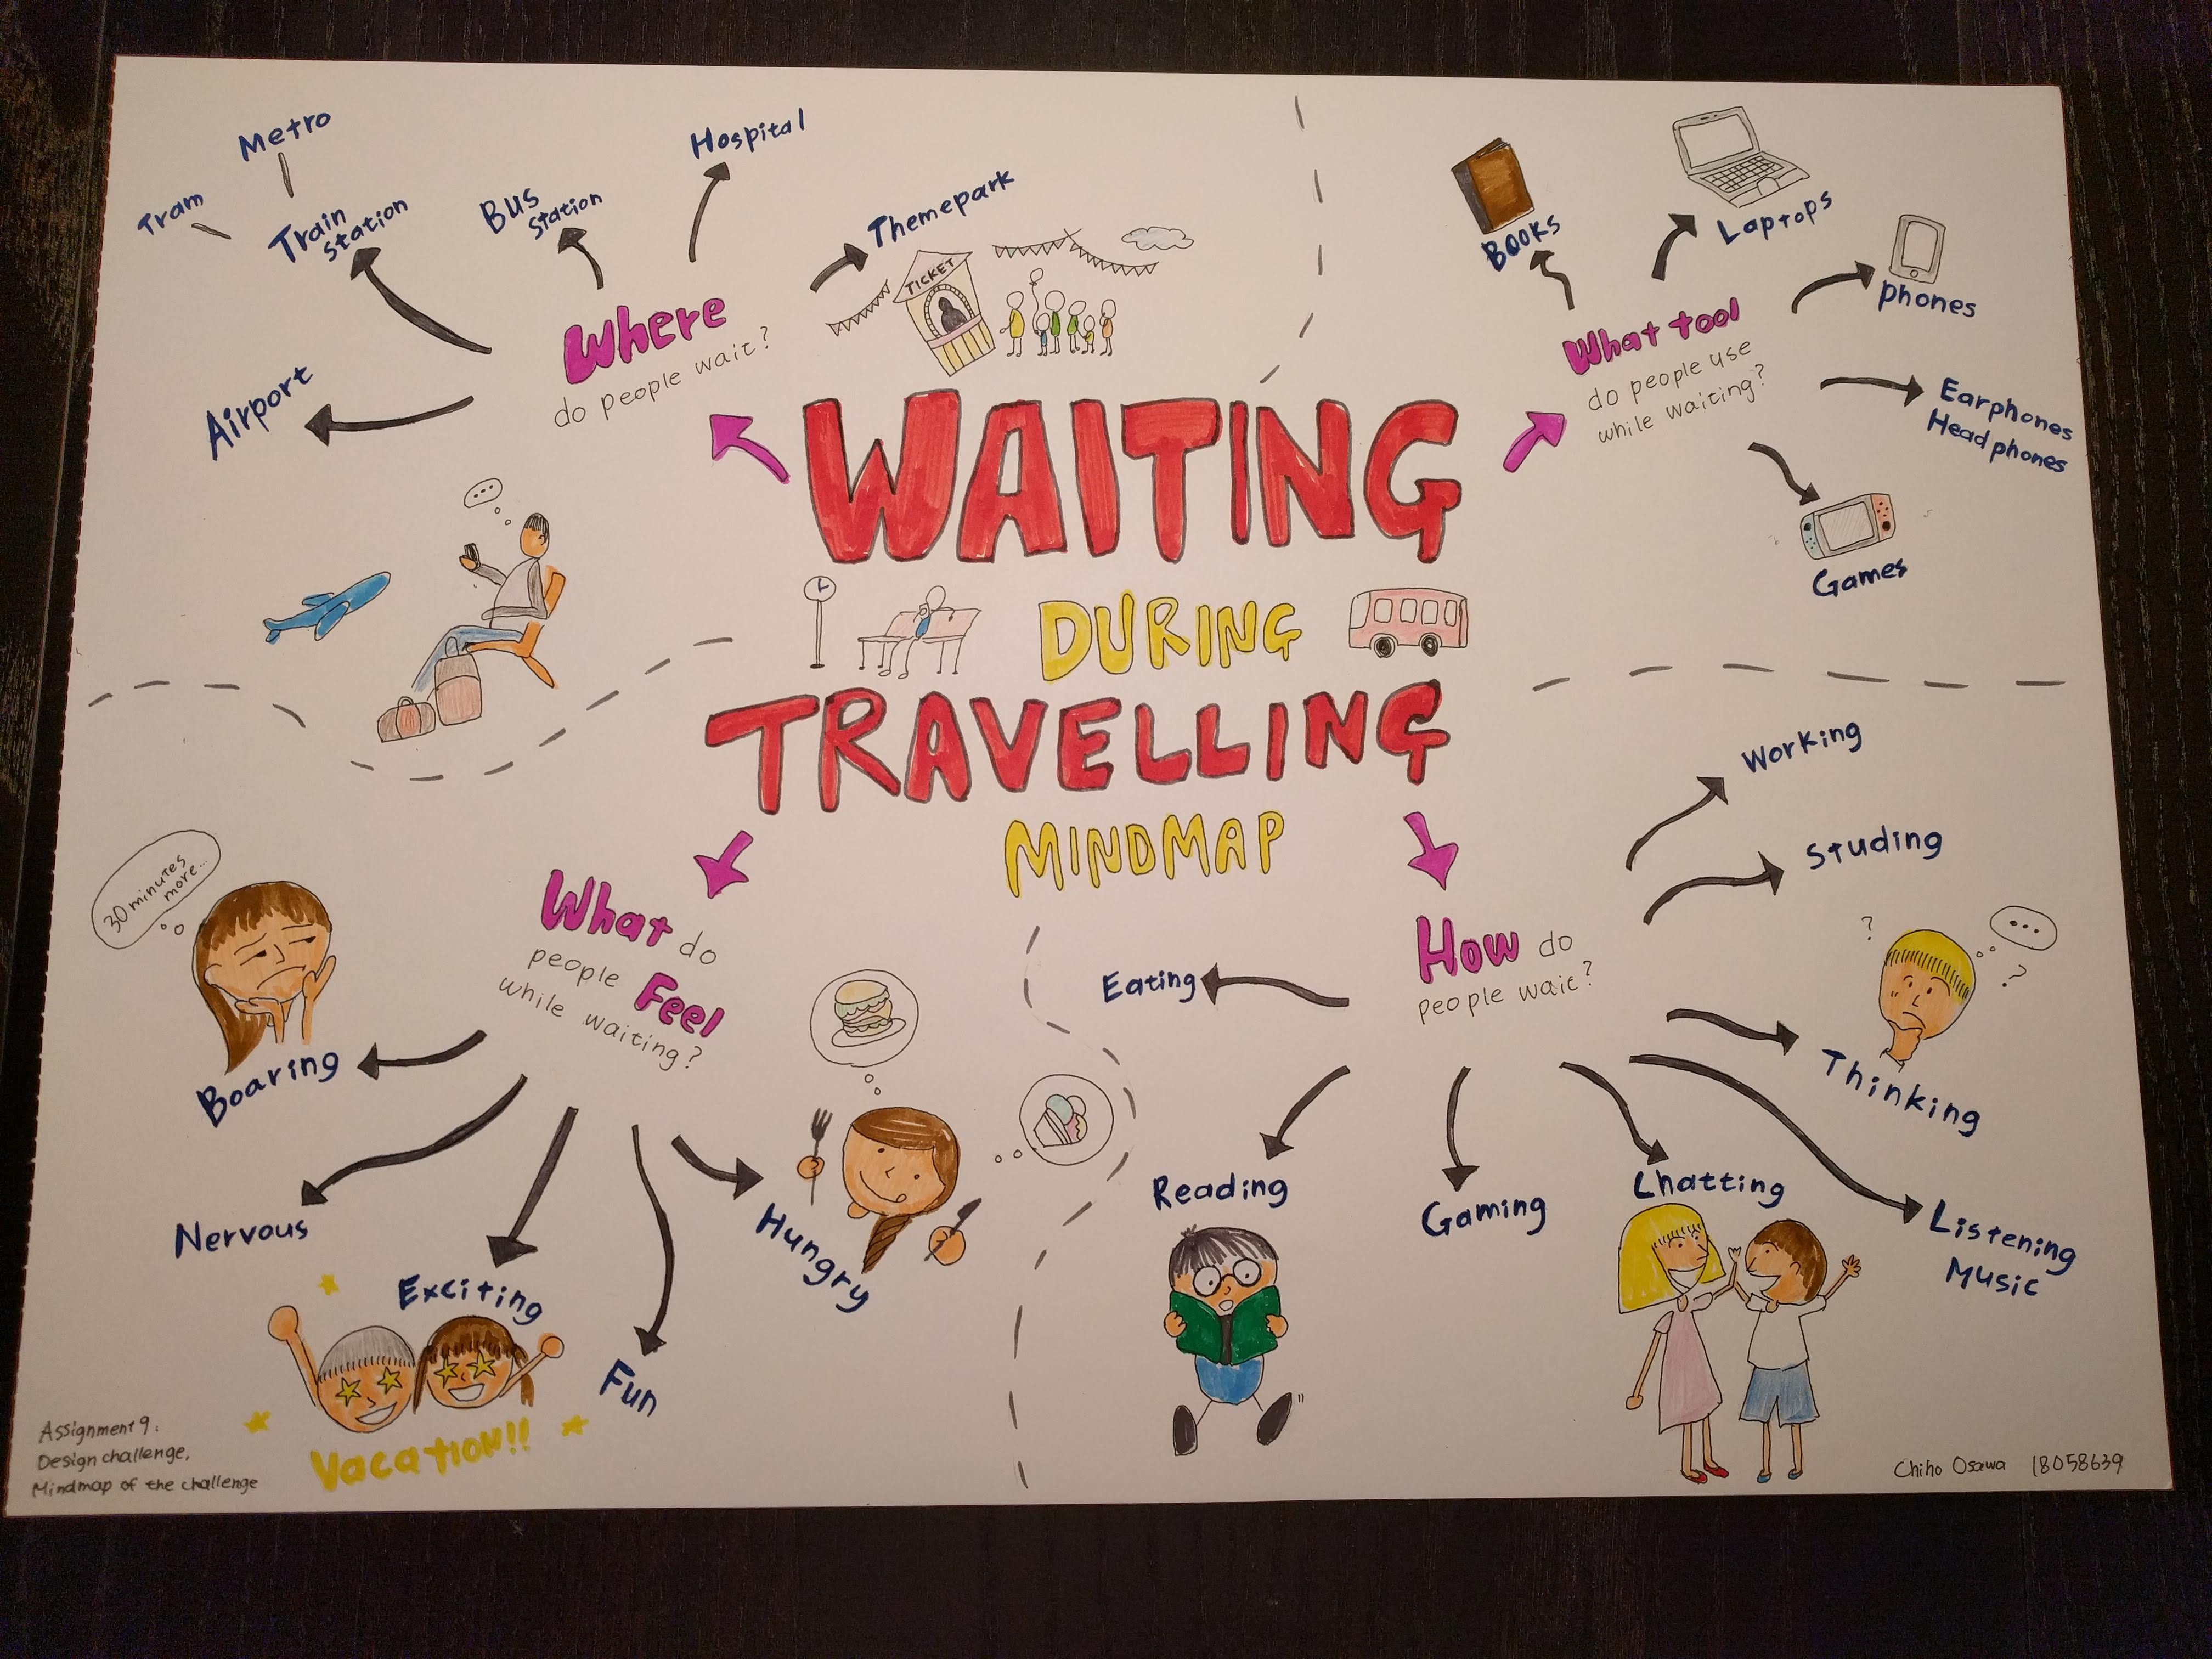 WAITING
DURING
TRAVELLING
MINDMAP
Where
do people wait?
Airport
Train
Station
Tram
Metro
Bus
Station
Hospital
Themepark
TICKET
...
What tool
do people use
while waiting?
Books
Laptops
Phones
Earphones
Headphones
Games
What do
people Feel
while waiting?
30 minutes
more...
Boaring
Nervous
Exciting
Vacation!!
Fun
Hungry
How do
people wait?
Working
Studing
?
...
?
Thinking
Listening
Music
Chatting
Gaming
Reading
Eating
Assignment 9:
Design challenge,
Mindmap of the challenge
Chiho Osawa 18058639